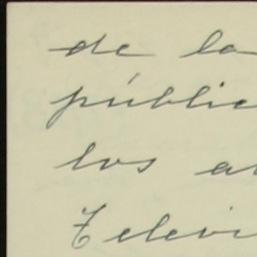 de la
públic
los a
Televi